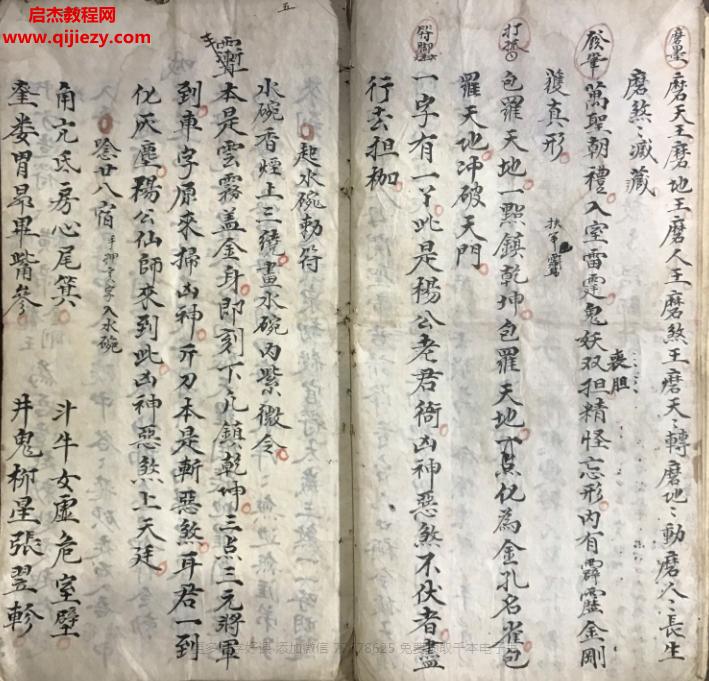 启杰教程网
www.qijiezy.com
磨墨
磨天王磨地王磨人王磨煞王磨天〻轉磨地〻動磨人〻長生
磨煞〻滅藏
發筆
萬聖朝禮入室雷霆鬼妖双担精怪忘形内有霹靂金剛
喪胆
護真形
包羅天地一點鎮乾坤包羅天地下点化為金孔名雀包
羅天地冲破天門
符脚
一字有一丫此是楊公老君衙凶神惡煞不伏者盡
行去担枷
五
起水碗勅符
水碗香煙上三繞畫水碗内紫微令
本是雲霧盖金身即刻下凡鎮乾坤三点三元將軍
到車字原來掃凶神斤刀本是斬惡煞耳君一到
化灰塵楊公仙師來到此凶神惡煞上天廷
唸廿八宿
入水碗
角亢氐房心尾箕
斗牛女虚危室壁
奎娄胃昴畢觜參
井鬼柳星張翌軫